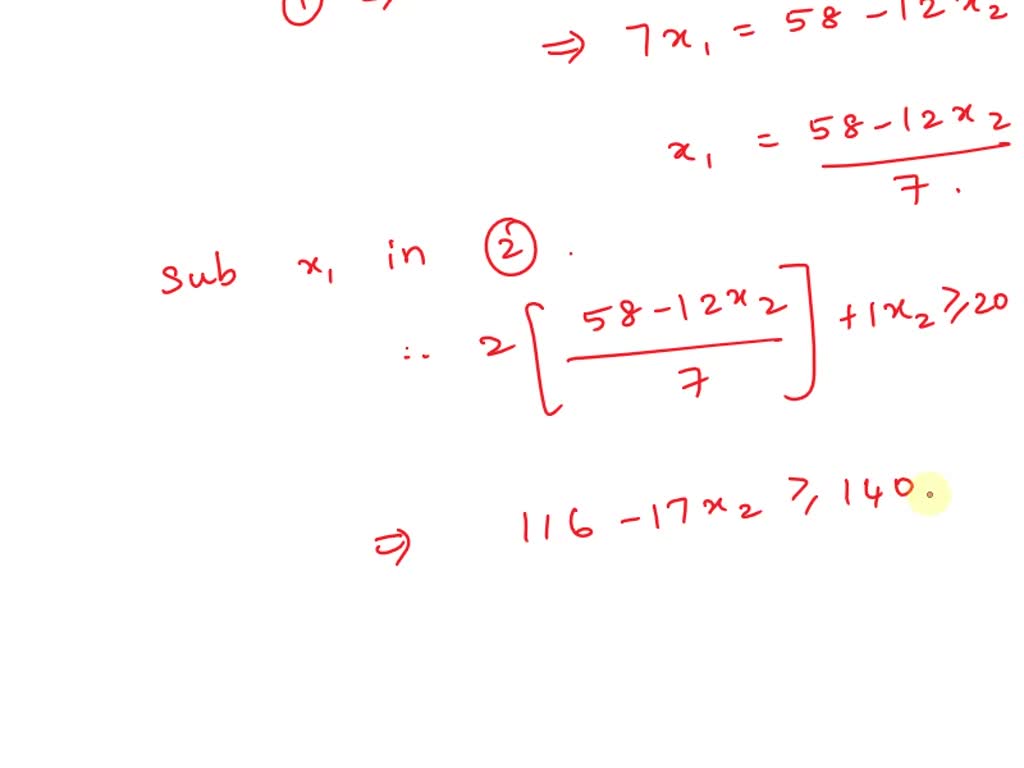 ① ⇒
⇒ 7x₁ = 58 - 12x₂
x₁ = (58 - 12x₂)/7 .
Sub x₁ in ② .
∴ 2[(58 - 12x₂)/7] + 1x₂ ≥ 20
⇒ 116 - 17x₂ ≥ 140.